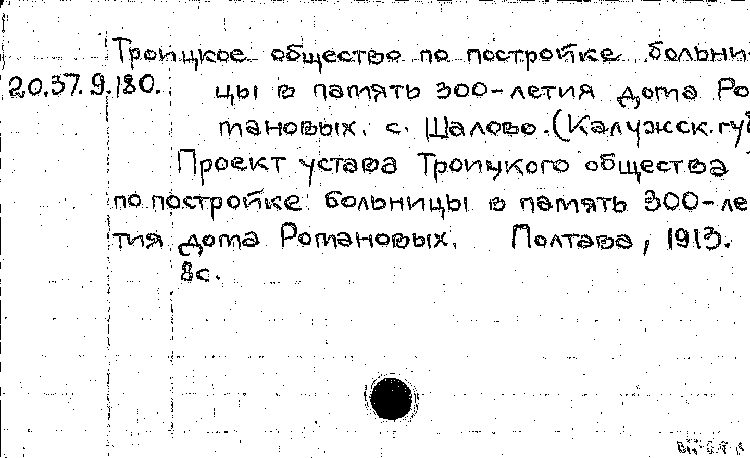 Троицкое общество по постройке больни-
20.37.9.180. цы в память 300-летия дома Ро
мановых. с. Шалово. (Калужск. губ
Проект устава Троицкого общества
по постройке больницы в память 300-ле
тия дома Романовых. Полтава, 1913.
8с.